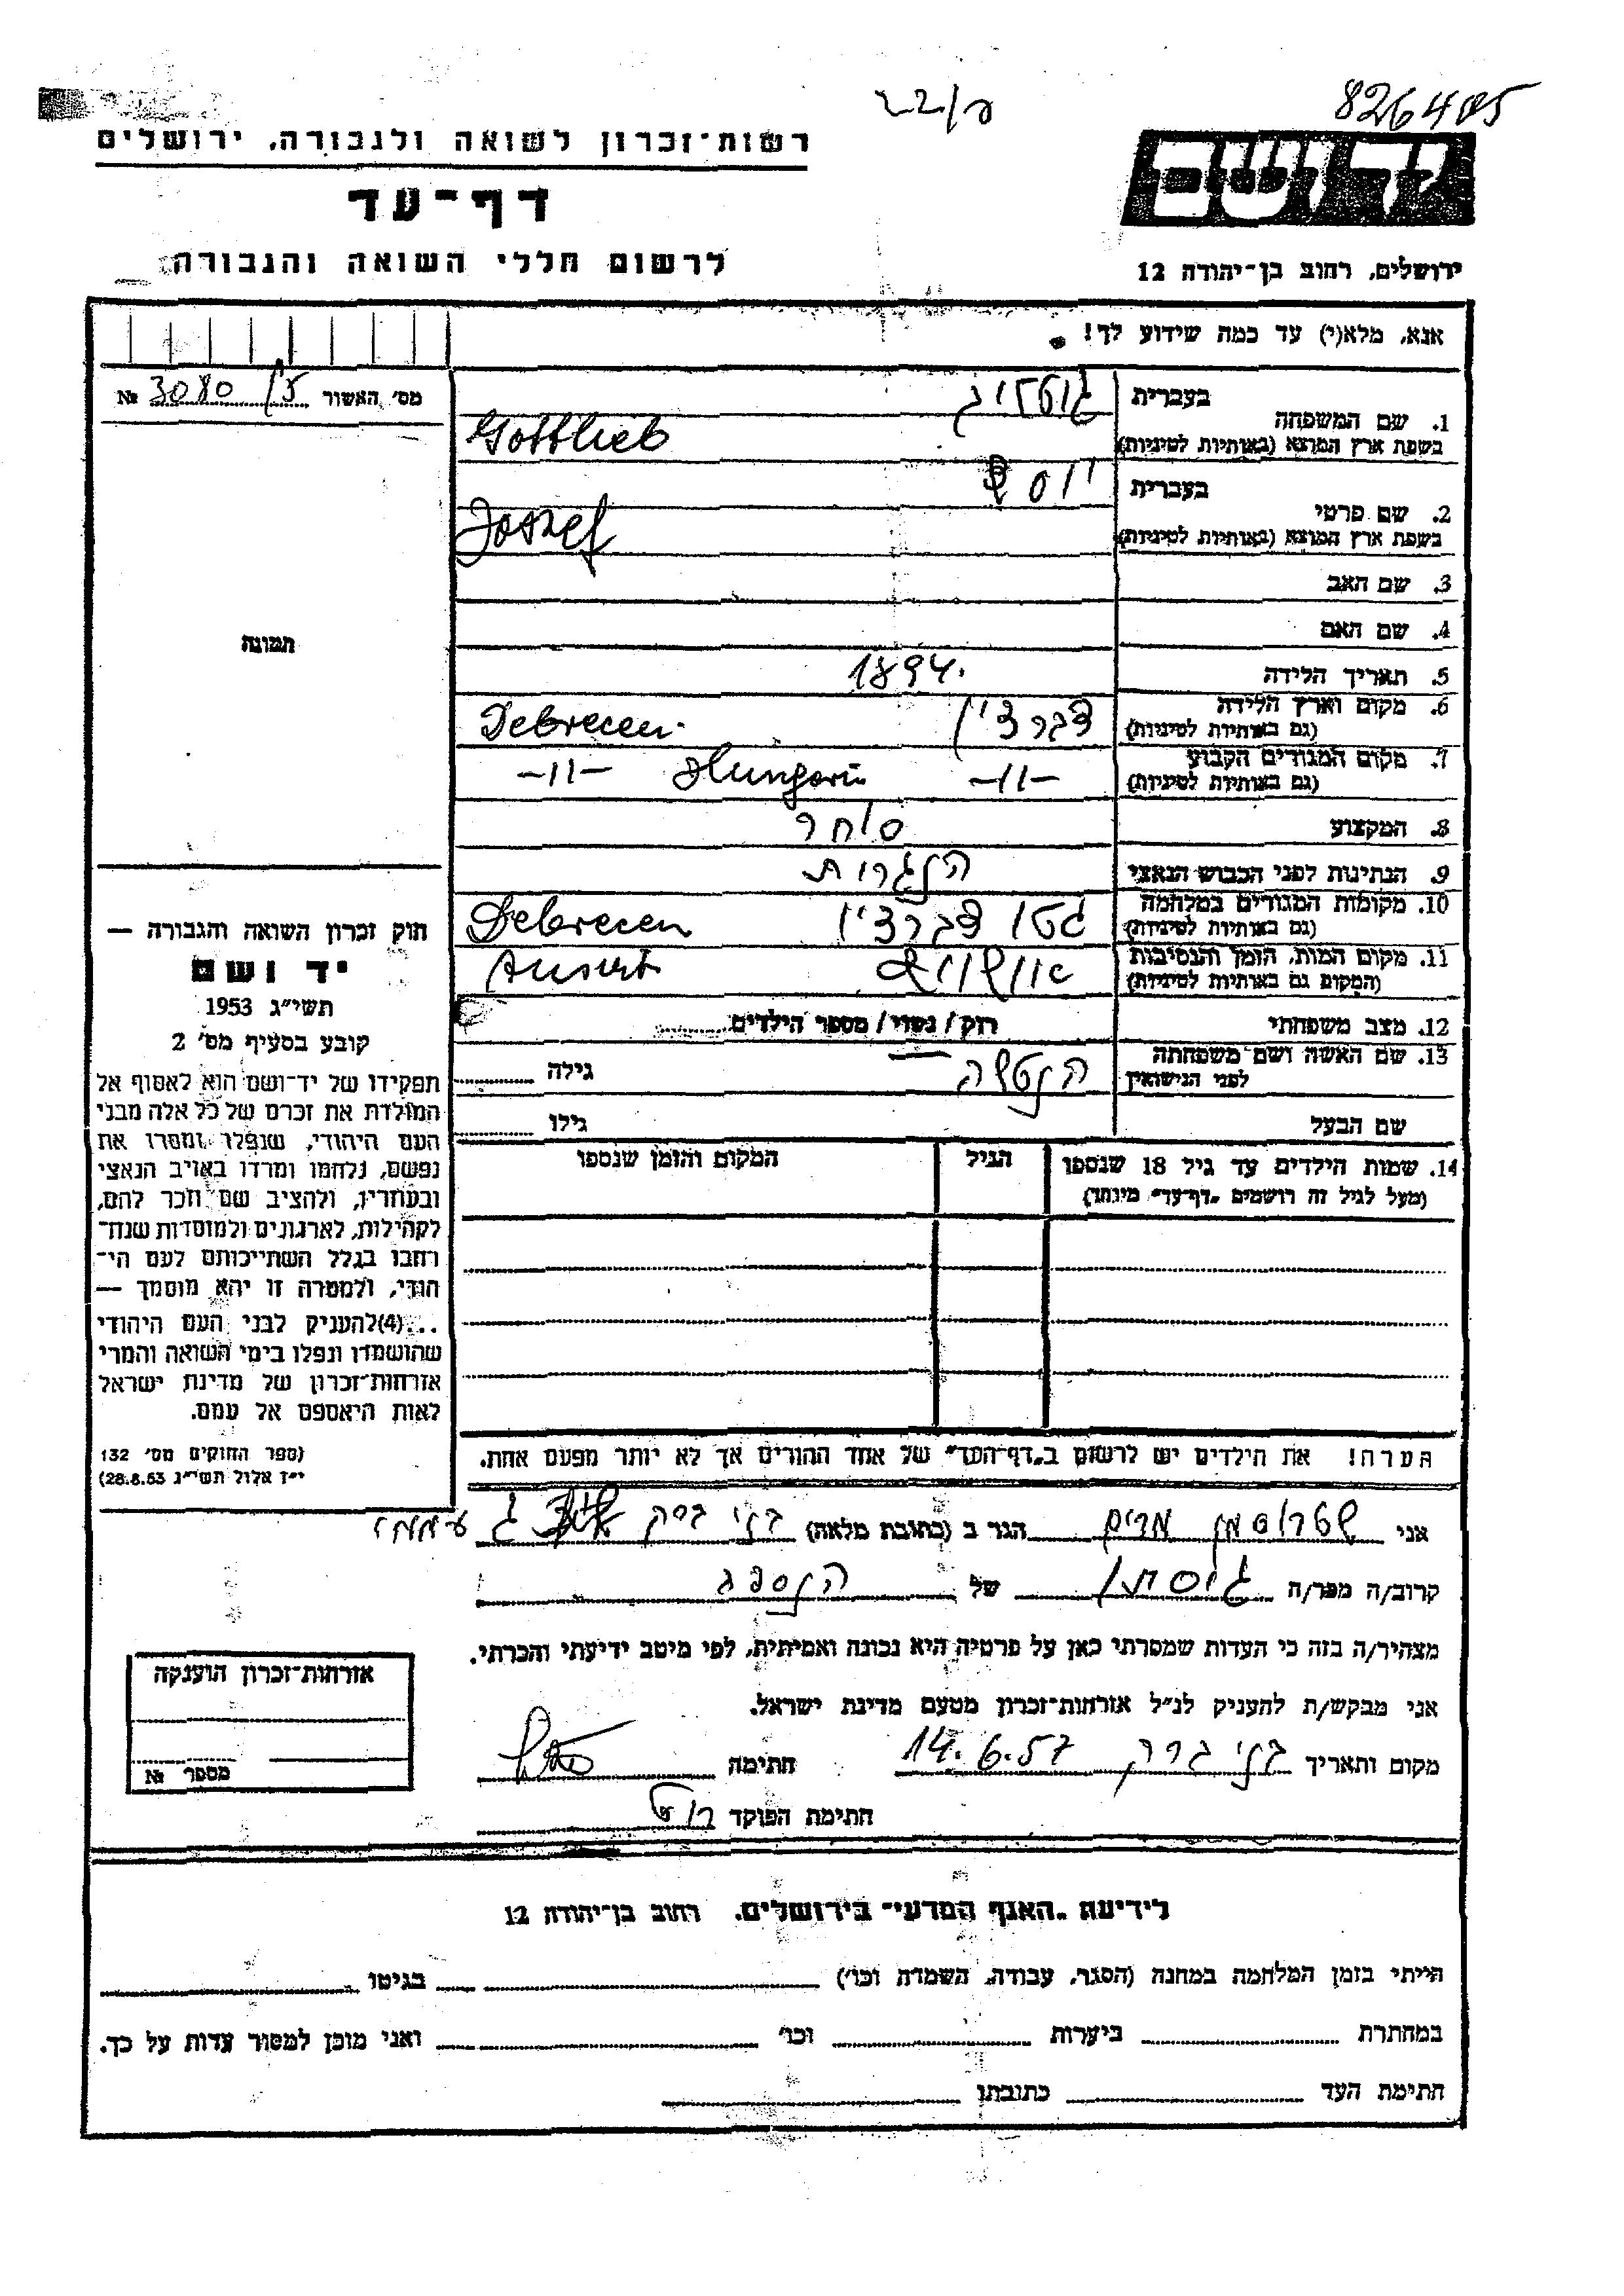 826405
22/מ
יד ושם
רשות־זכרון לשואה ולגבורה, ירושלים
דף־עד
לרשום חללי השואה והגבורה
ירושלים, רחוב בן־יהודה 12
אנא, מלא(י) עד כמה שידוע לך!
מס׳ האשור 3080 №
1. שם המשפחה
בעברית
גוטליב
בשפת ארץ המוצא (באותיות לטיניות)
Gottlieb
2. שם פרטי
בעברית
יוסף
בשפת ארץ המוצא (באותיות לטיניות)
Joszef
3. שם האב
4. שם האם
תמונה
5. תאריך הלידה 1894.
6. מקום וארץ הלידה דברצין Debrecen.
(גם באותיות לטיניות)
7. מקום המגורים הקבוע -11- -11-
(גם באותיות לטיניות)
8. המקצוע סוחר
9. הנתינות לפני הכבוש הנאצי הונגרית
10. מקומות המגורים במלחמה גטו דברצין Debrecen
(גם באותיות לטיניות)
11. מקום המות, הזמן והנסיבות אושוויץ
(המקום גם באותיות לטיניות)
12. מצב משפחתי רווק / נשוי / מספר הילדים
13. שם האשה ושם משפחתה
לפני הנישואין
גילה
שם הבעל גילו
14. שמות הילדים עד גיל 18 שנספו
(מעל לגיל זה רושמים „דף־עד״ מיוחד)
הגיל
המקום והזמן שנספו
הערה! את הילדים יש לרשום ב„דף־העד״ של אחד ההורים אך לא יותר מפעם אחת.
חוק זכרון השואה והגבורה —
יד ושם
תשי״ג 1953
קובע בסעיף מס׳ 2
תפקידו של יד־ושם הוא לאסוף אל
המולדת את זכרם של כל אלה מבני
העם היהודי, שנפלו ומסרו את
נפשם, נלחמו ומרדו באויב הנאצי
ובעוזריו, ולהציב שם וזכר להם,
לקהילות, לארגונים ולמוסדות שנח־
רבו בגלל השתייכותם לעם הי־
הודי, ולמטרה זו יהא מוסמך —
...(4)להעניק לבני העם היהודי
שהושמדו ונפלו בימי השואה והמרי
אזרחות־זכרון של מדינת ישראל
לאות היאספם אל עמם.
(ספר החוקים מס׳ 132
י״ז אלול תשי״ג 28.8.53)
אני שטרוסמן מרים הגר ב (כתובת מלאה) בני ברק
קרוב/ה מכר/ה גיסתו של הנספה
מצהיר/ה בזה כי העדות שמסרתי כאן על פרטיה היא נכונה ואמיתית, לפי מיטב ידיעתי והכרתי.
אני מבקש/ת להעניק לנ״ל אזרחות־זכרון מטעם מדינת ישראל.
מקום ותאריך בני ברק 14.6.57 חתימה
חתימת הפוקד
אזרחות־זכרון הוענקה
מספר №
לידיעת „האגף המדעי״ בירושלים, רחוב בן־יהודה 12
הייתי בזמן המלחמה במחנה (הסגר, עבודה, השמדה וכו׳) בגיטו
במחתרת ביערות וכו׳ ואני מוכן למסור עדות על כך.
חתימת העד כתובתו